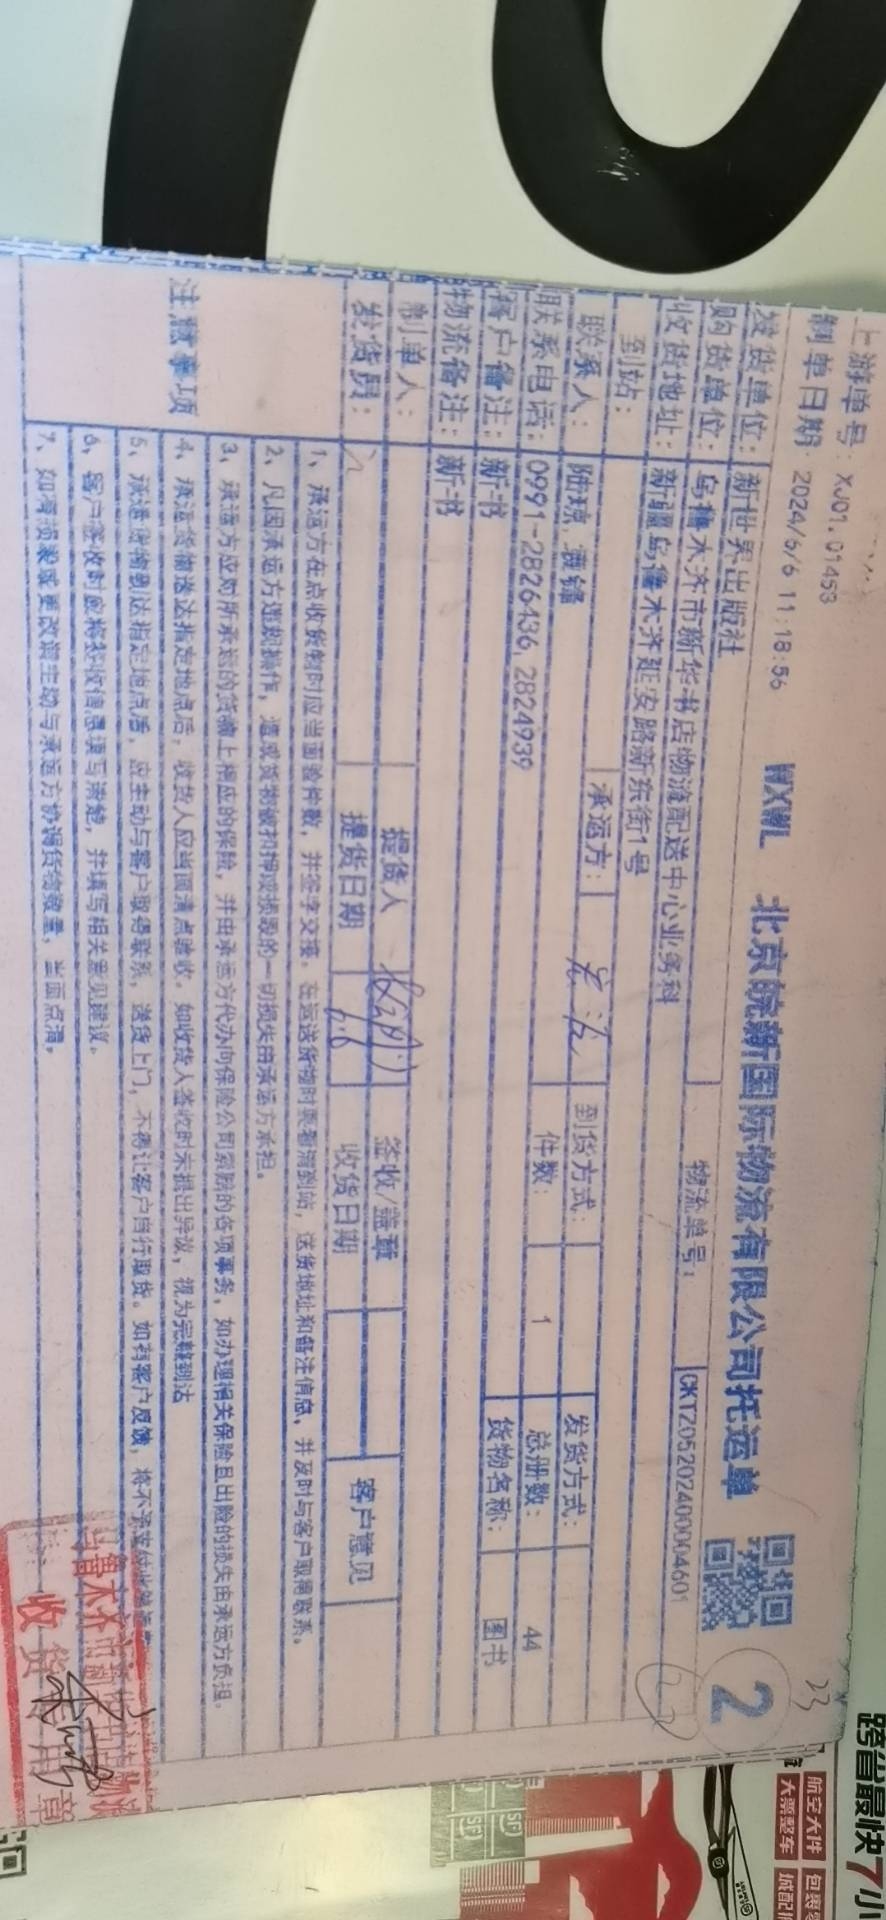 上游单号：XJ01.01453
制单日期：2024/6/6 11:18:56
WXWL 北京皖新国际物流有限公司托运单
2
23
发货单位：新世界出版社
物流单号：CKTZ05202400004601
购货单位：乌鲁木齐市新华书店物流配送中心业务科
收货地址：新疆乌鲁木齐延安路新东街1号
到站：
承运方：
到货方式：
发货方式：
联系人：陆琼,
件数：1
总册数：44
联系电话：0991-2826436,2824939
货物名称：图书
客户备注：新书
物流备注：新书
制单人：
提货人
签收/盖章
客户意见
发货员：
提货日期 6.6
收货日期
注意事项
1、承运方在点收货物时应当面验件数，并签字交接。在运送货物时要看清到站，送货地址和备注信息，并及时与客户取得联系。
2、凡因承运方违规操作，造成货物被扣押或损毁的一切损失由承运方承担。
3、承运方应对所承运的货物上相应的保险，并由承运方代办向保险公司索赔的各项事务，如办理相关保险且出险的损失由承运方负担。
4、承运货物送达指定地点后，收货人应当面清点验收。如收货人签收时未提出异议，视为完整到达
5、承运货物到达指定地点后，应主动与客户取得联系，送货上门，不得让客户自行取货。如有客户反馈，将不予支付
6、客户签收时应将签收信息填写清楚，并填写相关意见建议。
7、如有损毁或更改请主动与承运方协调货物数量，当面点清。
乌鲁木齐市新华书店物流
收货专用章
跨省最快7小
航空大件
包裹
大票整车
城配
SF